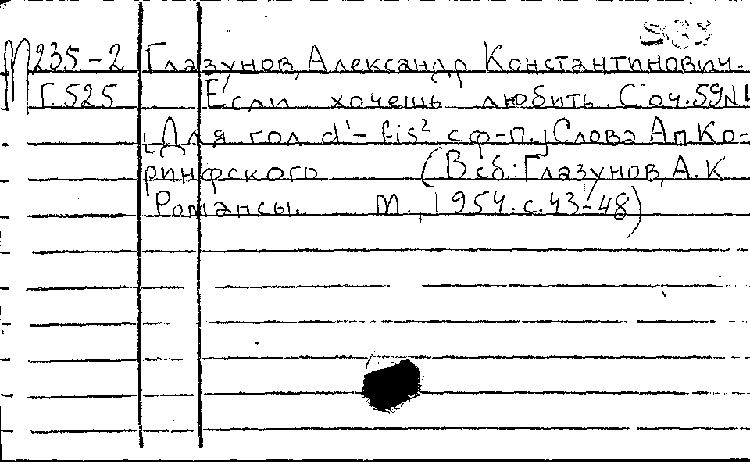 М 235-2 Глазунов, Александр Константинович.
Г.525 Если хочешь любить. Соч.59№1
[Для гол. d¹-fis² с ф-п.] Слова Ап Ко-
ринфского (В сб: Глазунов, А.К
Романсы. М., 1954. с.43-48)